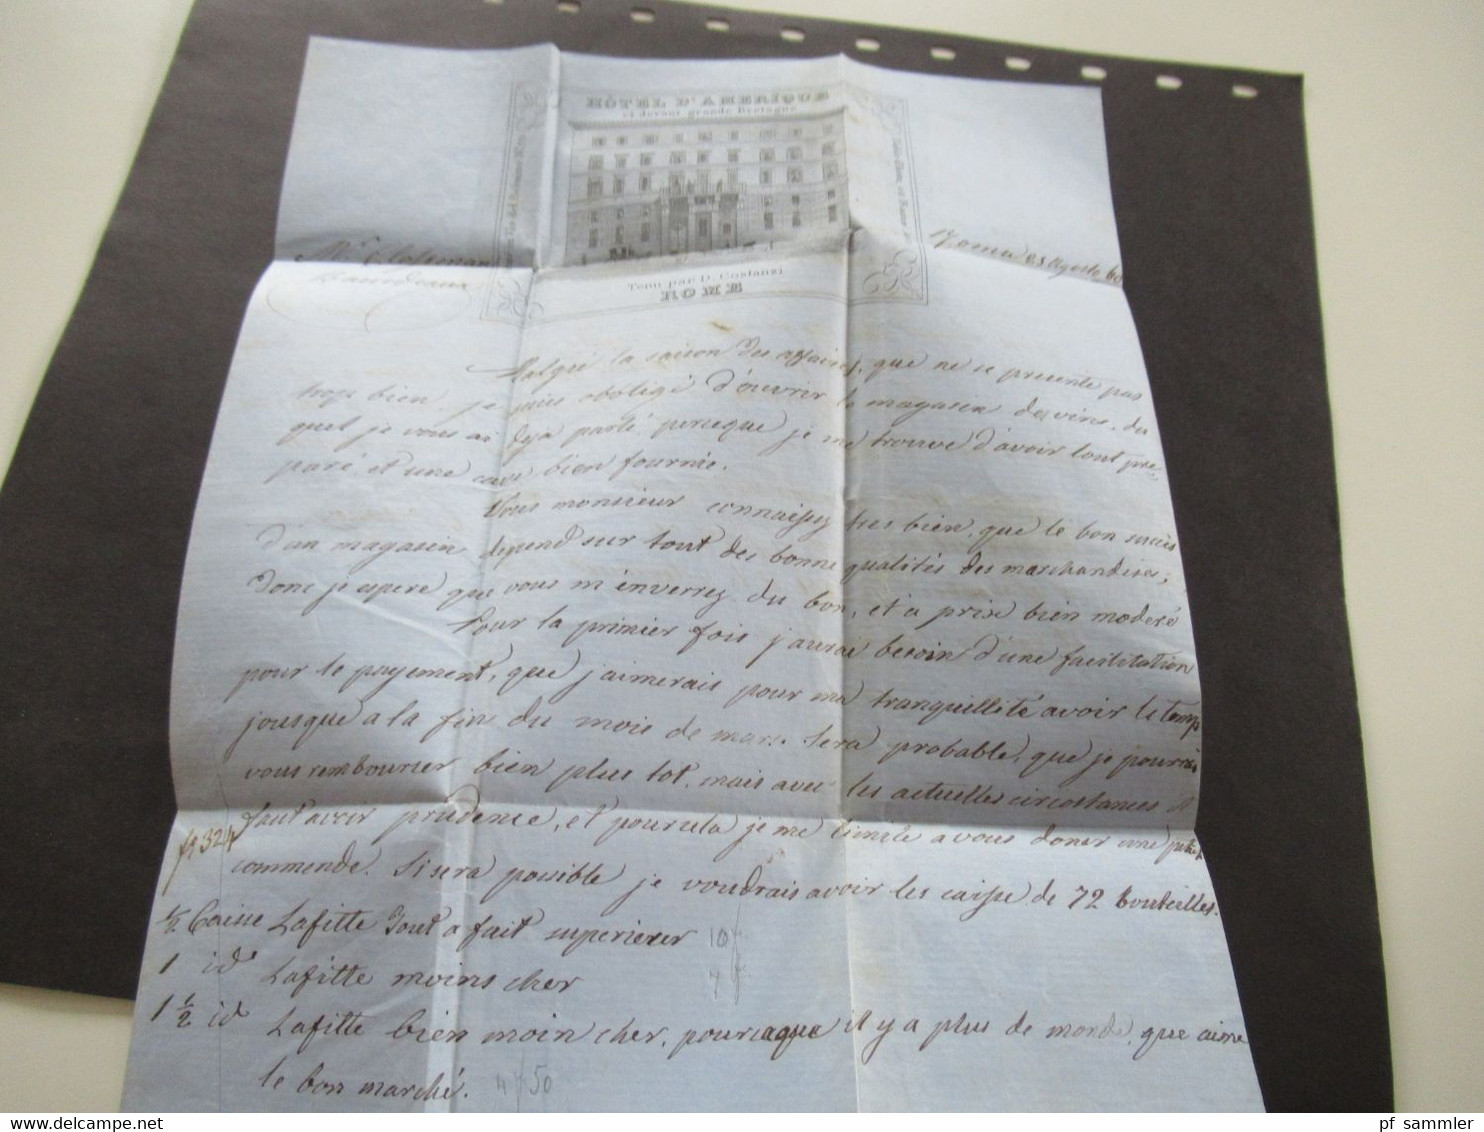 HÔTEL D'AMERIQUE
ci devant grande Bretagne
Tenu par D. Costanzi
ROME
Roma 23 Agosto 60
Malgré la saison des affaires, que ne se presente pas
trop bien, je suis obbligé d'ouvrir le magasin des vins, du
quel je vous ai dejà parlé, perceque je me trouve d'avoir tout pre
paré et une cave bien fournie.
Vous monsieur connaissez tres bien, que le bon succès
d'un magasin depend sur tout des bonne qualités des marchandises;
donc je espere que vous m'enverrez du bon, et a prix bien modéré
Pour la primier fois j'aurai besoin d'une facilitation
pour le payement, que j'aimerais pour ma tranquillité avoir le temps
jousque a la fin du mois de mars. Sera probable, que je pourrai
vous rembourser bien plus tot, mais avec les actuelles circostances il
faut avoir prudence, et pour cela je me limite a vous doner une petite
commende. Si sera possible je voudrais avoir les caisse de 72 bouteilles.
fr 324
1/2 Caisse Lafitte Tout a fait superieur 10f
1 id Lafitte moins cher 7f
1 1/2 id Lafitte bien moin cher, pourceque il y a plus de monde, que aime
le bon marché. 4f50